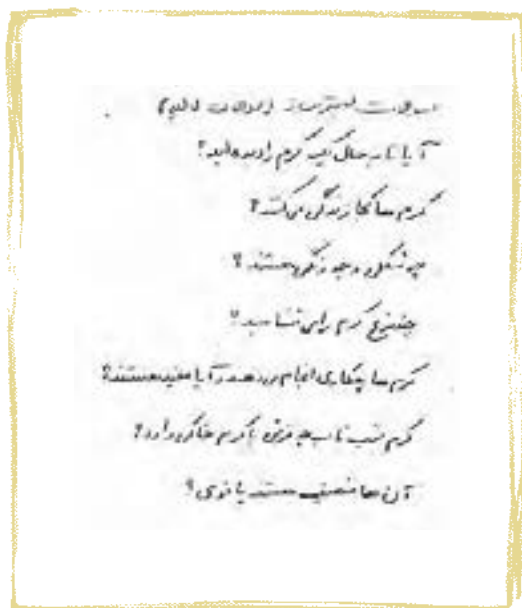 آیا تا به حال یک کرم را دیده اید؟
کرم ها کجا زندگی می کنند؟
چه شکلی و چه رنگی هستند؟
چند نوع کرم را می شناسید؟
کرم ها چکاری انجام می دهند و آیا مفید هستند؟
کرم شب تاب چه فرقی با کرم خاکی دارد؟
آن ها ضعیف هستند یا قوی؟